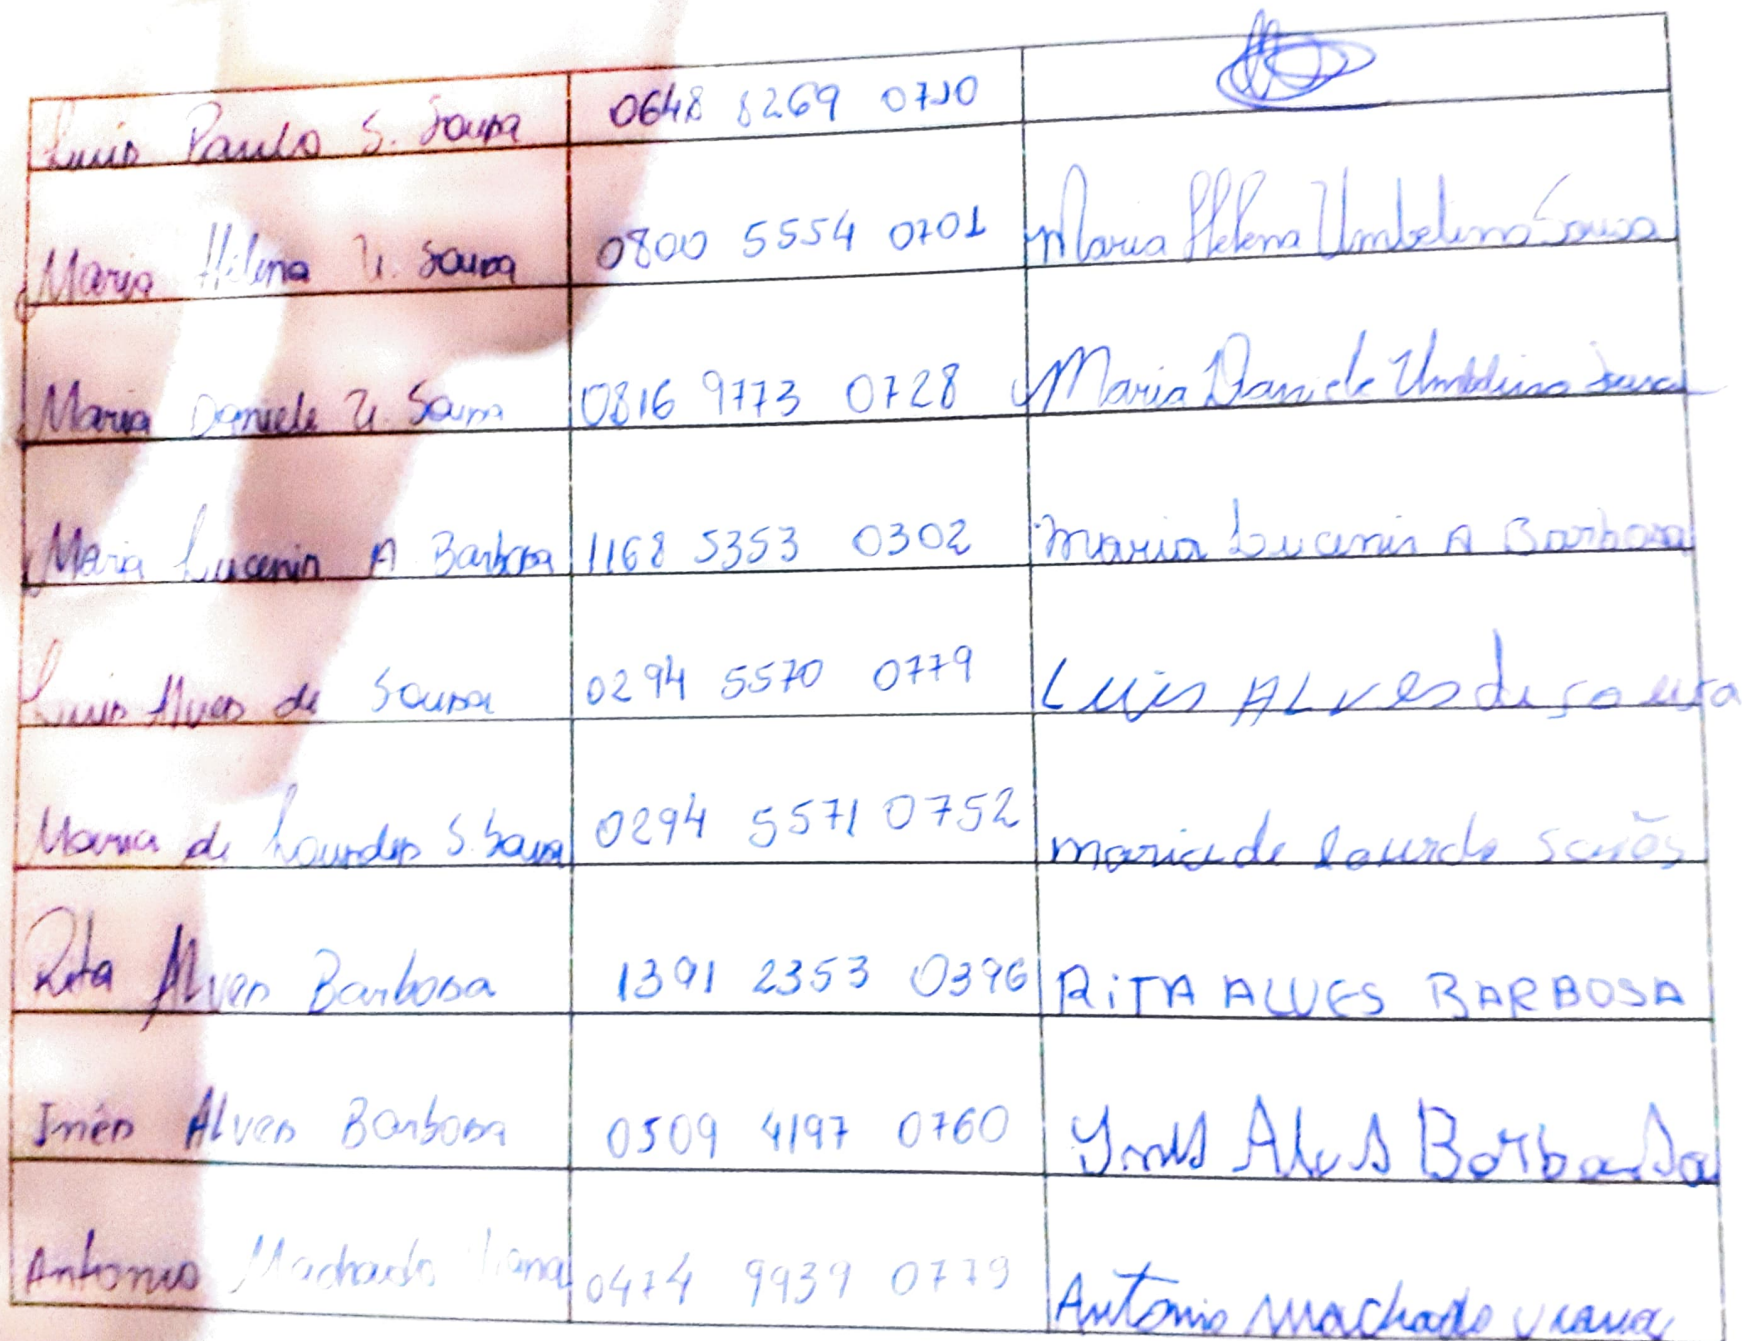 Luis Paulo S. Sousa 0648 8269 0710
Maria Helena U. Sousa 0800 5554 0701 Maria Helena Umbelino Sousa
Maria Daniele U. Sousa 0816 9773 0728 Maria Daniele Umbelino Sousa
Maria Lucenir A Barbosa 1168 5353 0302 Maria Lucenir A Barbosa
Luis Alves de Sousa 0294 5570 0779 Luis ALves de sousa
Maria de Lourdes S. Sousa 0294 5571 0752 maria de lourde
Rita Alves Barbosa 1391 2353 0396 RiTA ALVES BARBOSA
Inês Alves Barbosa 0509 4197 0760 Barbosa
Antonio Machado Viana 0474 9939 0779 Antonio Machado viana